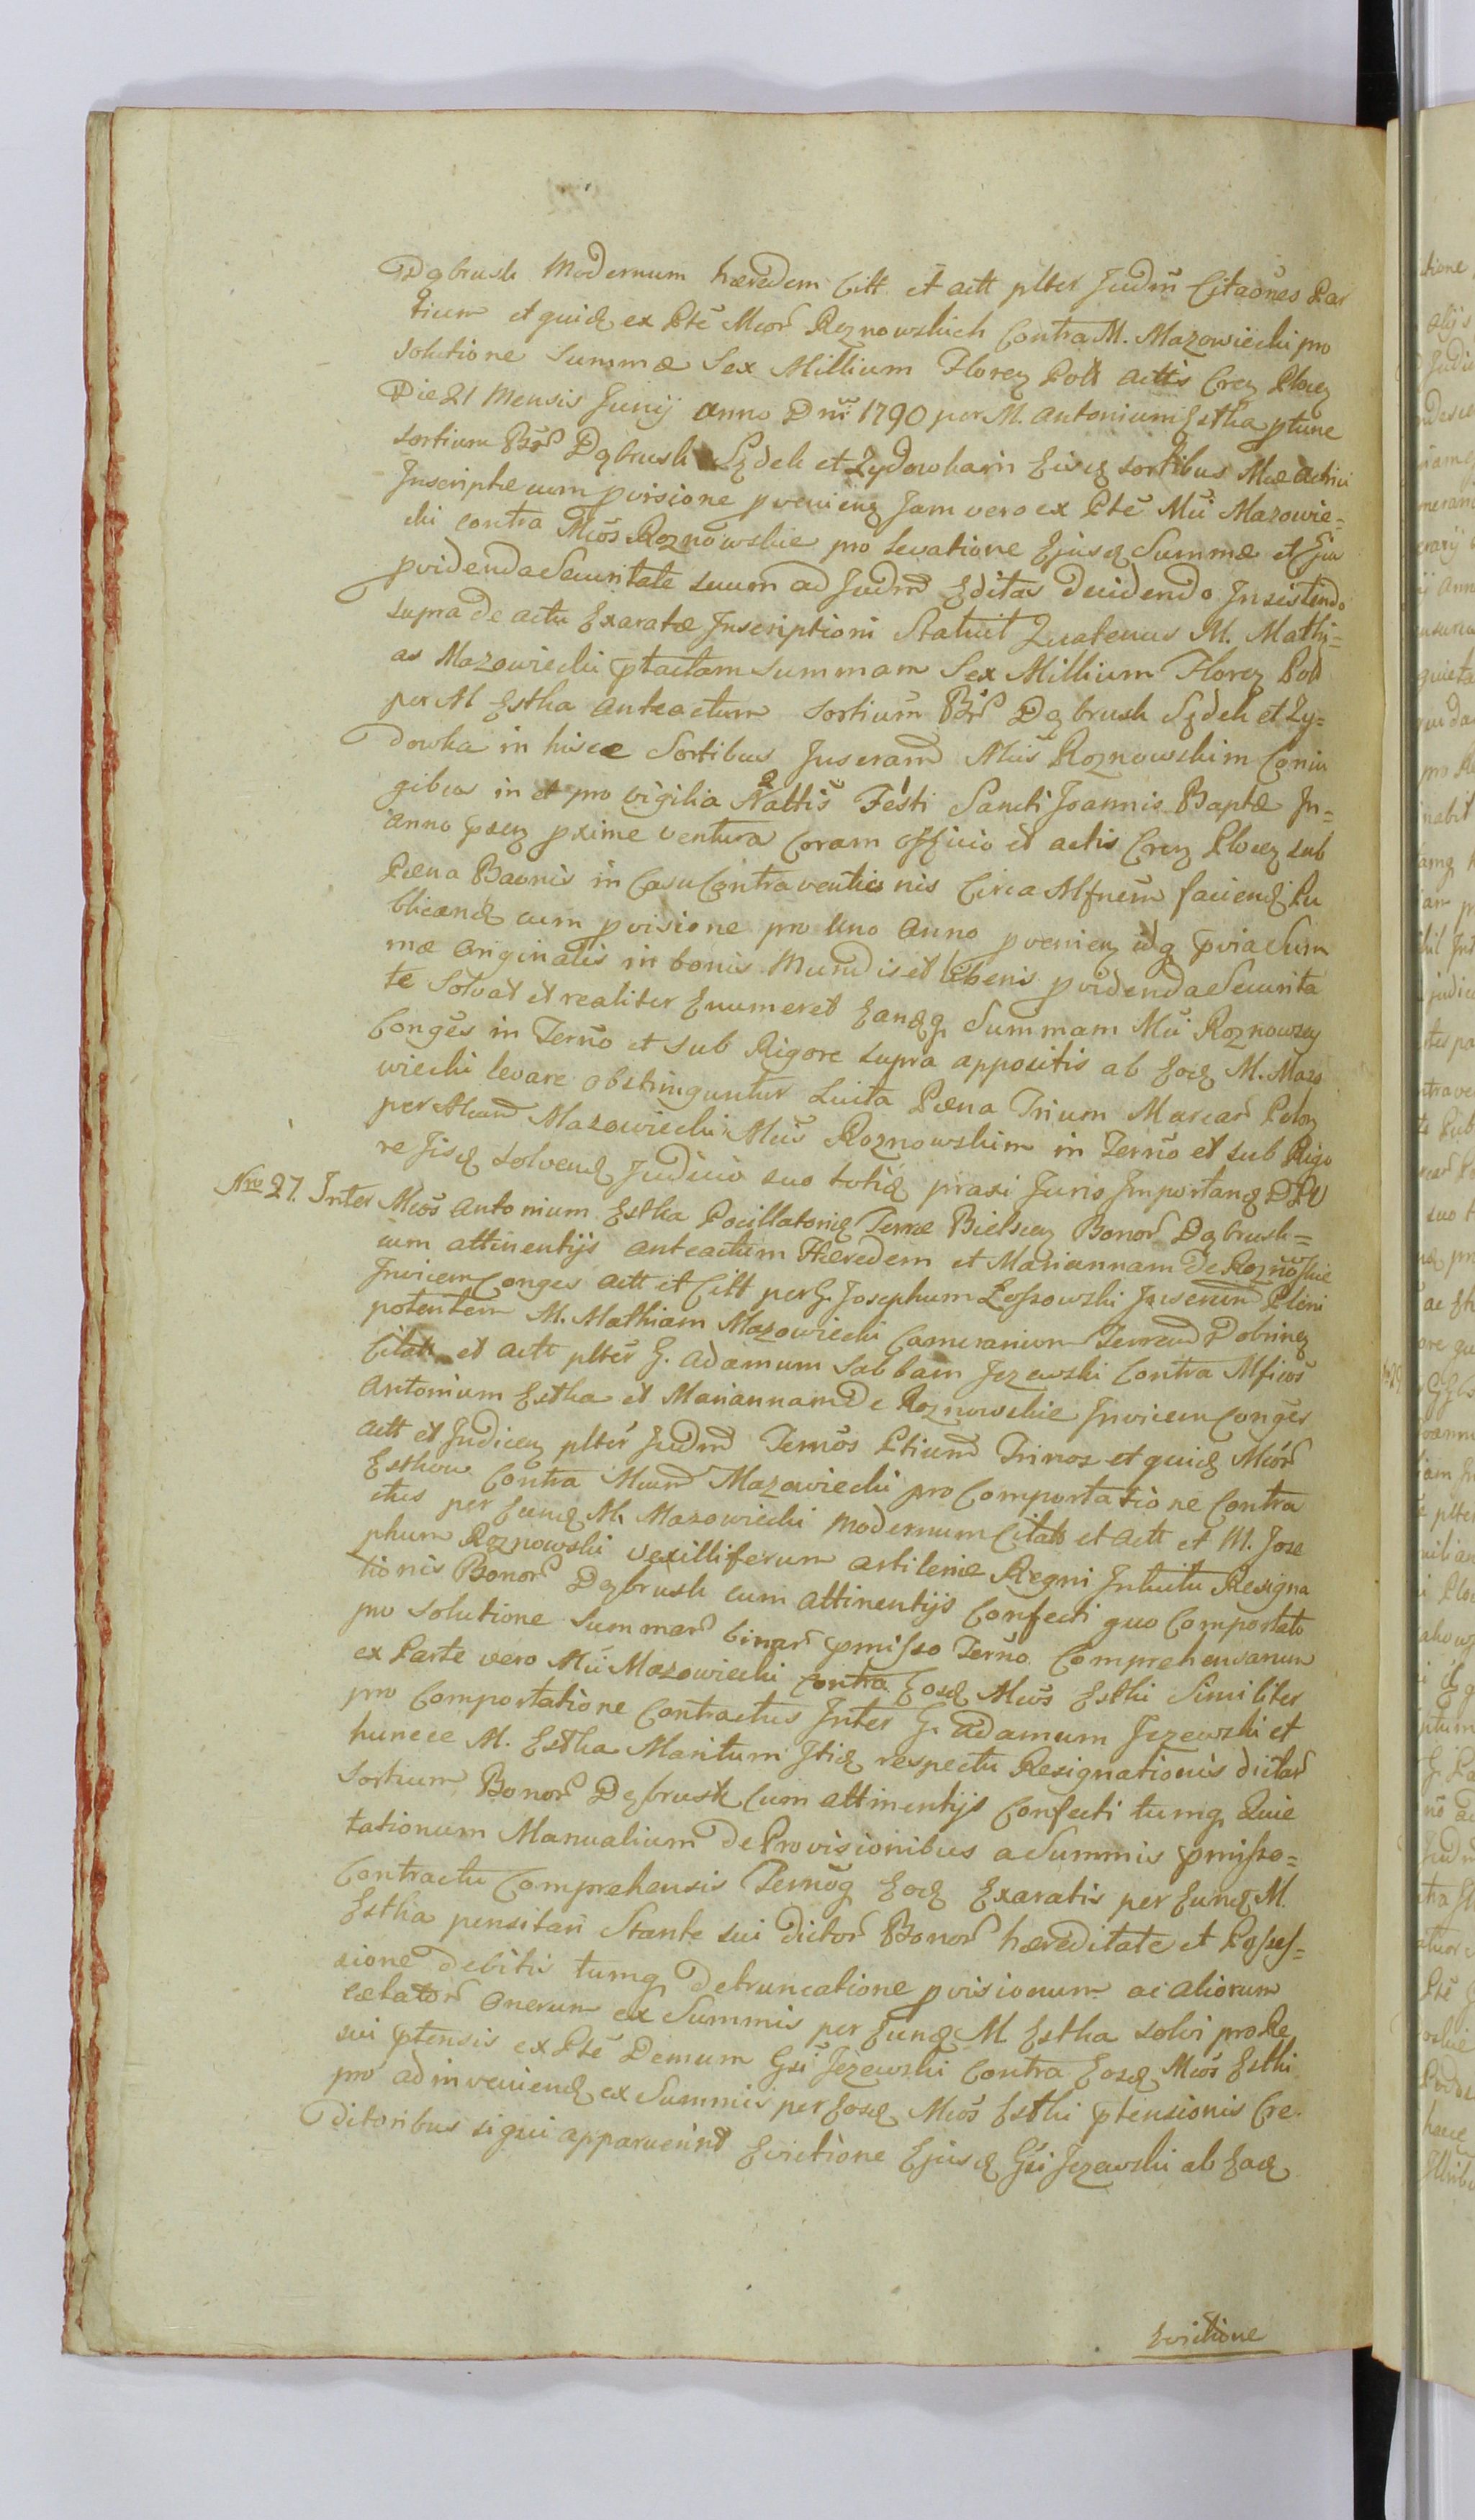 Dąbrusk Modernum hæredem Citt et actt plter Judm̄ Citaōnes Par
tium et quidē ex Ptē Mcor̄ Roznowskich Contra M. Mazowiecki pro
solutione Summæ Sex Millium Floreꝫ Poll actis Creꝫ Ploceꝫ
Die 21 Mensis Junij anno Dnī 1790 per M. Antonium Estka ptunc
sortium Bor̄ Dąbrusk Sędek et Zydowkain Eisdē sortibus Mcæ
Inscriptæ cum pvisione pvenienꝫ Jam vero ex Ptē Mci Mazowie=
cki contra Mcos Roznowskie pro levatione Ejusdē Summæ et Ejus
pvidenda Securitate suum ad Judm̄ Editas Decidendo Insistendo
supra de actu Exaratæ Inscriptioni Statuit Quatenus M. Mathi=
as Mazowiecki ptactam summam Sex Millium Floreꝫ Poll
per M Estka anteactum sortium Bor̄ Dąbrusk Sędek et Zy=
dowka in hisce Sortibus Inseram̄ Mcis Roznowskim Conju
gibus in et pro vigilia Nattis Festi Sancti Joannis Baptæ In=
anno præꝫ pxime ventura Coram officio et actis Creꝫ Ploceꝫ sub
Pæna Baonis in Casu Contraventionis Circa Mfnem faciendē Pu
blicandē cum pvisione pro uno anno pvenienꝫ idq pvia Sum
mæ originalis in bonis Mundis et liberis pvidenda Securita
te Solvat et realiter Enumeret Eandē Summam Mci Roznowscy
Conges in Ternō et sub Rigore supra appositis ab Eodē M. Mazo
wiecki levare obstringuntur Luita Pæna Trium Marcar̄ Polon
per Mcum Mazowiecki Mcis Roznowskim in Ternō et sub Rigo
re Jisdē solvendē Judicio suo totidē praxi Juris Importandē DPV
Nro 27. Inter Mcos Antonium Estka Pocillatoridē Terræ Bielscen Bonor̄ Dąbrusk=
cum attinentijs anteactum Hæredem et Mariannam De Roznowskie
Invicem Conges actt et Citt per G. Josephum Lossowski Inserum Pleni
potentem M. Mathiam Mazowiecki Camerarium Terrarum Dobrineꝫ
Citatt et actt plter G. Adamum Sabbam Jezewski Contra Mficos
Antonium Estka et Mariannam De Roznowskie Invicem Conges
actt et Indiceꝫ plter Judm̄ Ternos Ptium Trinos et quidē Mcor̄
Esthow Contra Mcum Mazowiecki pro Comportatione Contra
ctus per Eundē M. Mazowiecki Modernum Citatt et actt et M. Jose
phum Roznowski vexilliferum artileriæ Regni Intuitu Resigna
tionis Bonor̄ Dąbrusk cum attinentijs Confecti quo Comportato
pro solutione Summar̄ binar̄ pmisso Ternō Comprehensarum
ex Parte vero Mci Mazowiecki Contra Eosdē Mcos Estki Similiter
pro Comportatione Contractus Inter G. Adamum Jezewski et
huncce M. Estka Maritum Itidē respectu Resignationis dictar̄
Sortium Bonor̄ Dąbrusk Cum attinentijs Confecti tumq Quie
tationum Manualium De Provisionibus a Summis pmisso=
Contractu Comprehensis Ternōq Eodē Exaratis per Eundē M.
Estka pensitari Stante sui Dictor̄ Bonor̄ hæreditate et Posses=
sione debitis tumq Detruncatione pvisionum ac aliorum
cætator̄ onerum ex Summis per Eundē M. Estka solvi pro Re
sui ptensis ex Ptē Demum Gsi Jezewski Contra Eosdē Mcos Estki
pro adinveniendē ex Summis per Eosdē Mcos Estki ptensionis Cre=
ditoribus siqui apparuerint Evictione Ejusdē Gsi Jezewski ab Eadē
Evictione